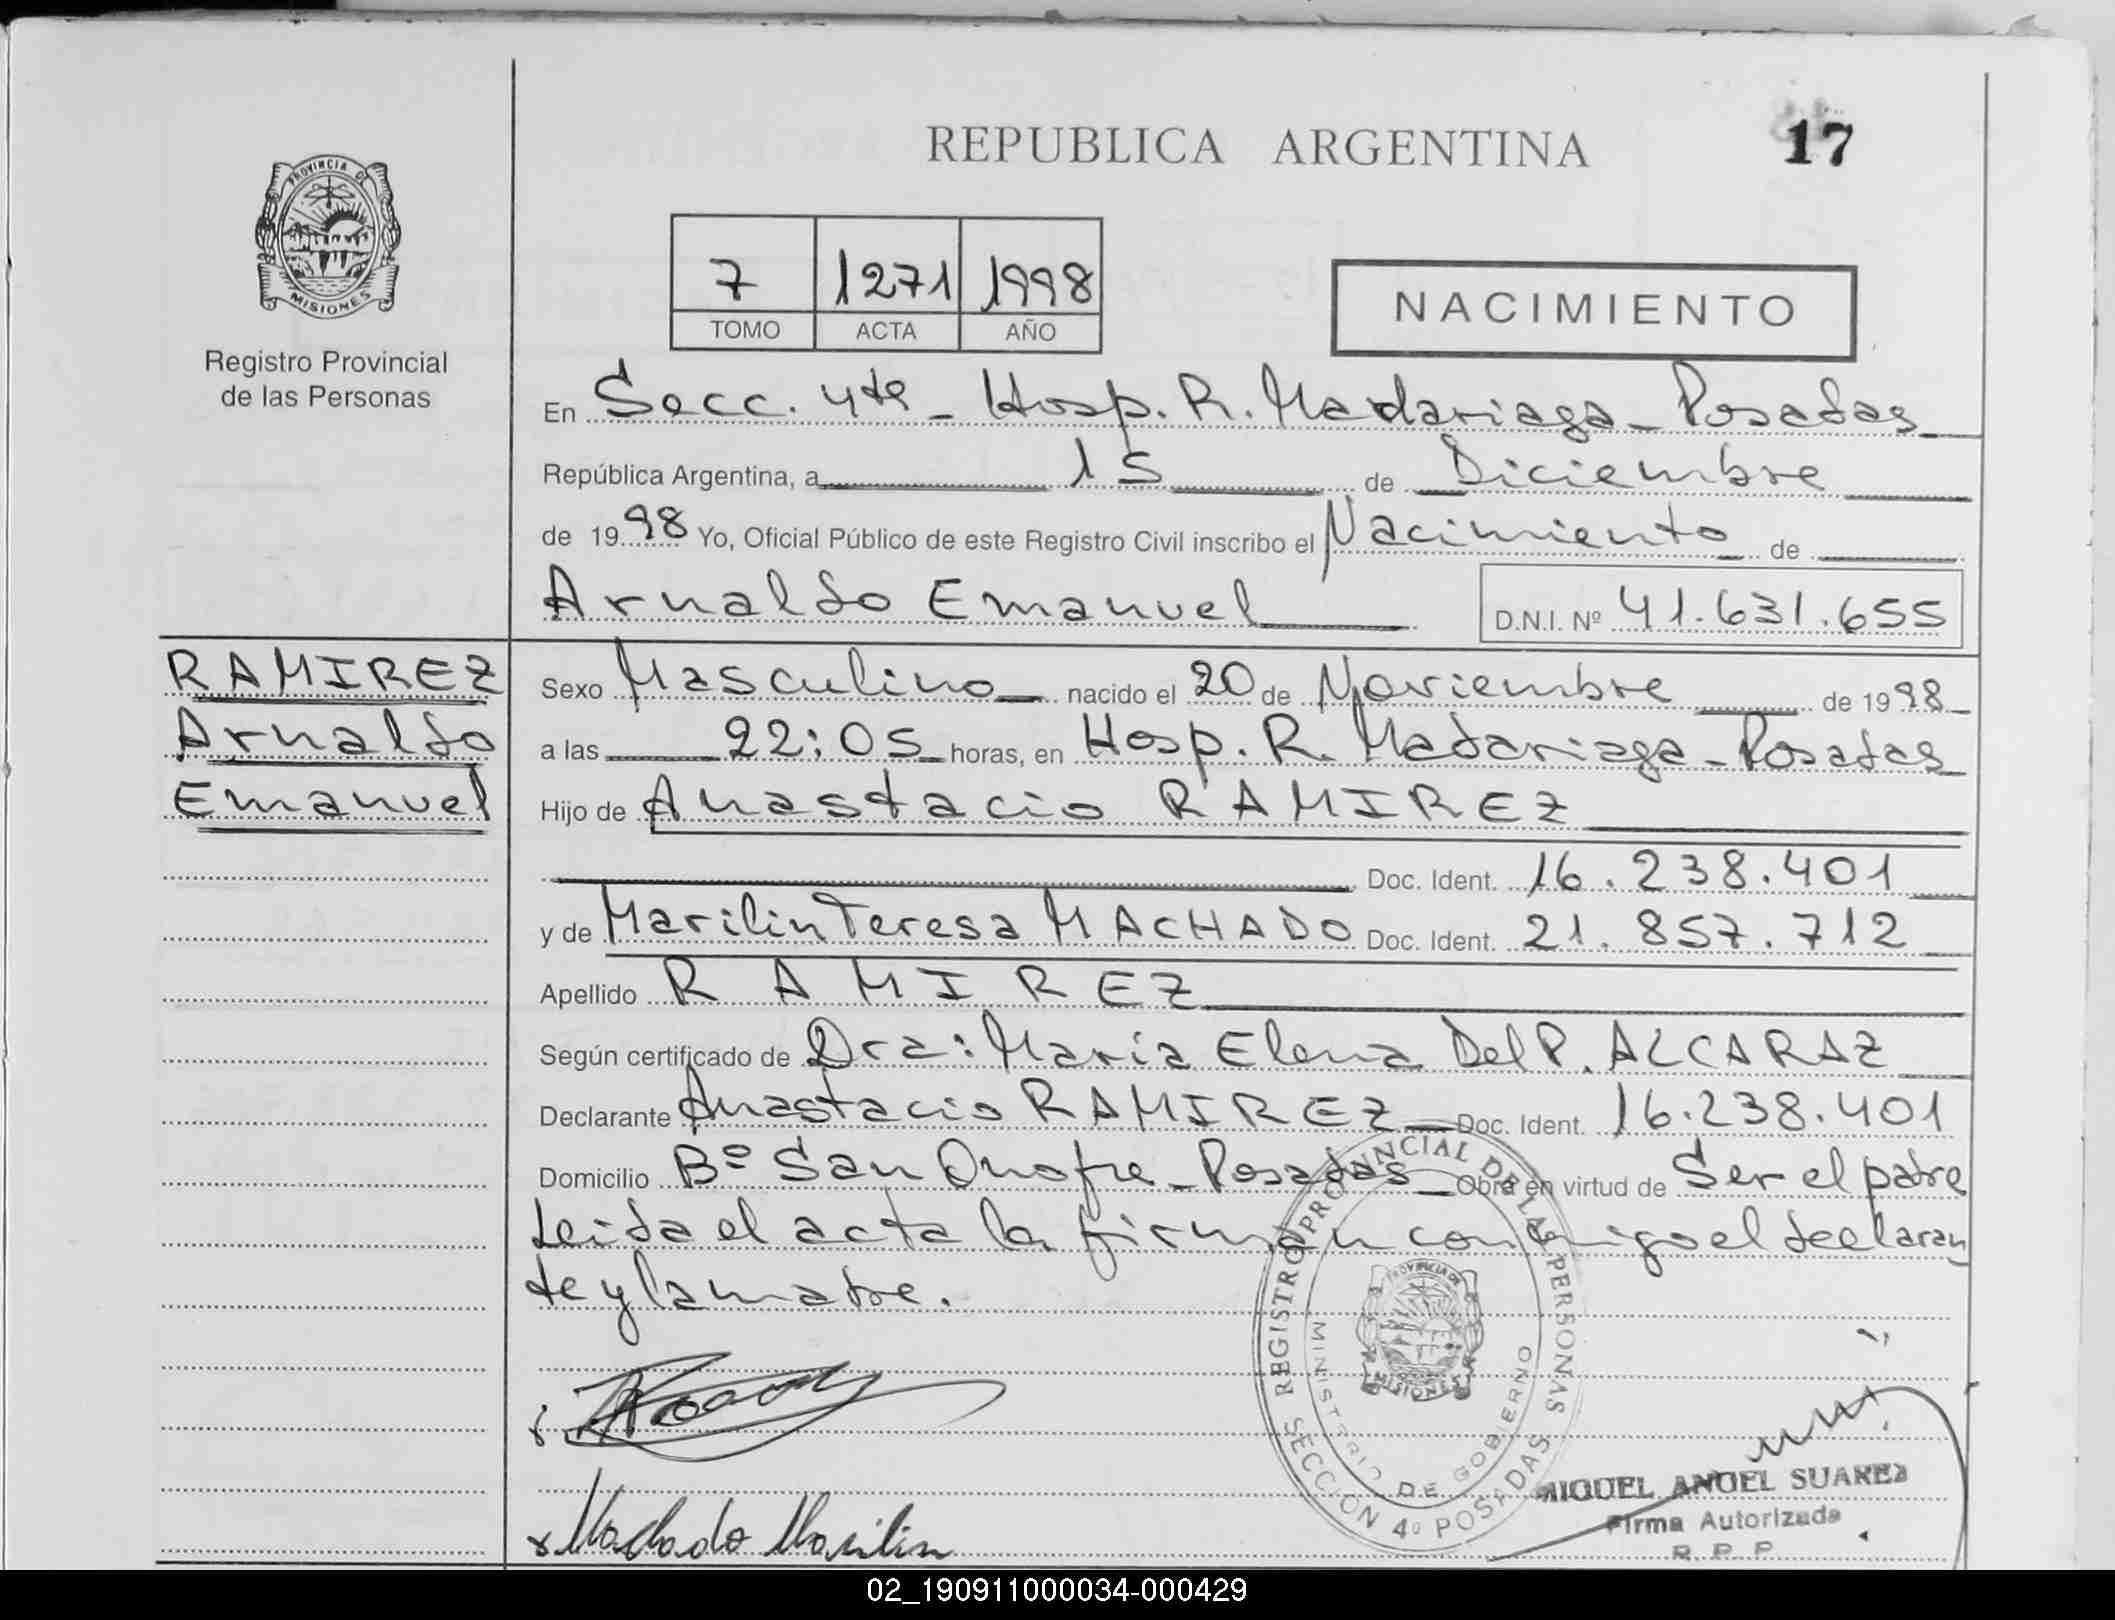 REPUBLICA ARGENTINA
17
PROVINCIA DE
MISIONES
Registro Provincial
de las Personas
7 1271 1998
TOMO ACTA AÑO
NACIMIENTO
En Secc. 4ta - Hosp. R. Madariaga - Posadas
República Argentina, a 15 de Diciembre
de 1998 Yo, Oficial Público de este Registro Civil inscribo el Nacimiento de
Arnaldo Emanuel D.N.I. Nº 41.631.655
RAMIREZ
Arnaldo
Emanuel
Sexo Masculino nacido el 20 de Noviembre de 1998
a las 22:05 horas, en Hosp. R. Madariaga - Posadas
Hijo de Anastacio RAMIREZ
Doc. Ident. 16.238.401
y de Marilin Teresa MACHADO Doc. Ident. 21.857.712
Apellido RAMIREZ
Según certificado de Dra: Maria Elena Del P. ALCARAZ
Declarante Anastacio RAMIREZ Doc. Ident. 16.238.401
Domicilio Bº San Onofre - Posadas Obra en virtud de Ser el padre
Leida el acta la firman conmigo el declaran
te y la madre.
REGISTRO PROVINCIAL DE LAS PERSONAS
MINISTERIO DE GOBIERNO
PROVINCIA DE
MISIONES
SECCIÓN 4º POSADAS
Machado Marilin
MIGUEL ANGEL SUAREZ
Firma Autorizada
R. P. P.
02_190911000034-000429